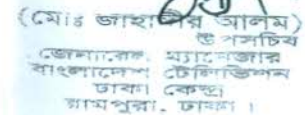 (মোঃ জাহাঙ্গীর আলম)
উপসচিব
জেনারেল ম্যানেজার
বাংলাদেশ টেলিভিশন
ঢাকা কেন্দ্র
রামপুরা, ঢাকা ।